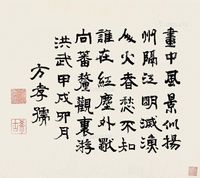 畫中風景似揚
州隔江明滅漁
人火春愁不知
誰在紅塵外戲
向蕃釐觀裏游
洪武甲戌卯月
方孝孺